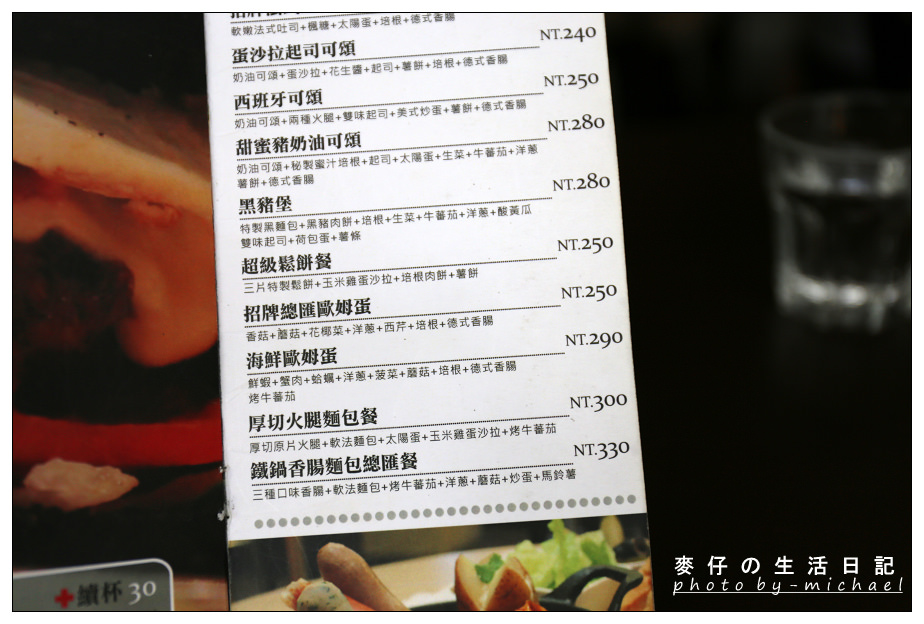 軟嫩法式吐司+楓糖+太陽蛋+培根+德式香腸
蛋沙拉起司可頌 NT.240
奶油可頌+蛋沙拉+花生醬+起司+薯餅+培根+德式香腸
西班牙可頌 NT.250
奶油可頌+兩種火腿+雙味起司+美式炒蛋+薯餅+德式香腸
甜蜜豬奶油可頌 NT.280
奶油可頌+秘製蜜汁培根+起司+太陽蛋+生菜+牛蕃茄+洋蔥
薯餅+德式香腸
黑豬堡 NT.280
特製黑麵包+黑豬肉餅+培根+生菜+牛蕃茄+洋蔥+酸黃瓜
雙味起司+荷包蛋+薯條
超級鬆餅餐 NT.250
三片特製鬆餅+玉米雞蛋沙拉+培根肉餅+薯餅
招牌總匯歐姆蛋 NT.250
香菇+蘑菇+花椰菜+洋蔥+西芹+培根+德式香腸
海鮮歐姆蛋 NT.290
鮮蝦+蟹肉+蛤蠣+洋蔥+菠菜+蘑菇+培根+德式香腸
烤牛蕃茄
厚切火腿麵包餐 NT.300
厚切原片火腿+軟法麵包+太陽蛋+玉米雞蛋沙拉+烤牛蕃茄
鐵鍋香腸麵包總匯餐 NT.330
三種口味香腸+軟法麵包+烤牛蕃茄+洋蔥+蘑菇+炒蛋+馬鈴薯
續杯 30
麥仔の生活日記
photo by-michael